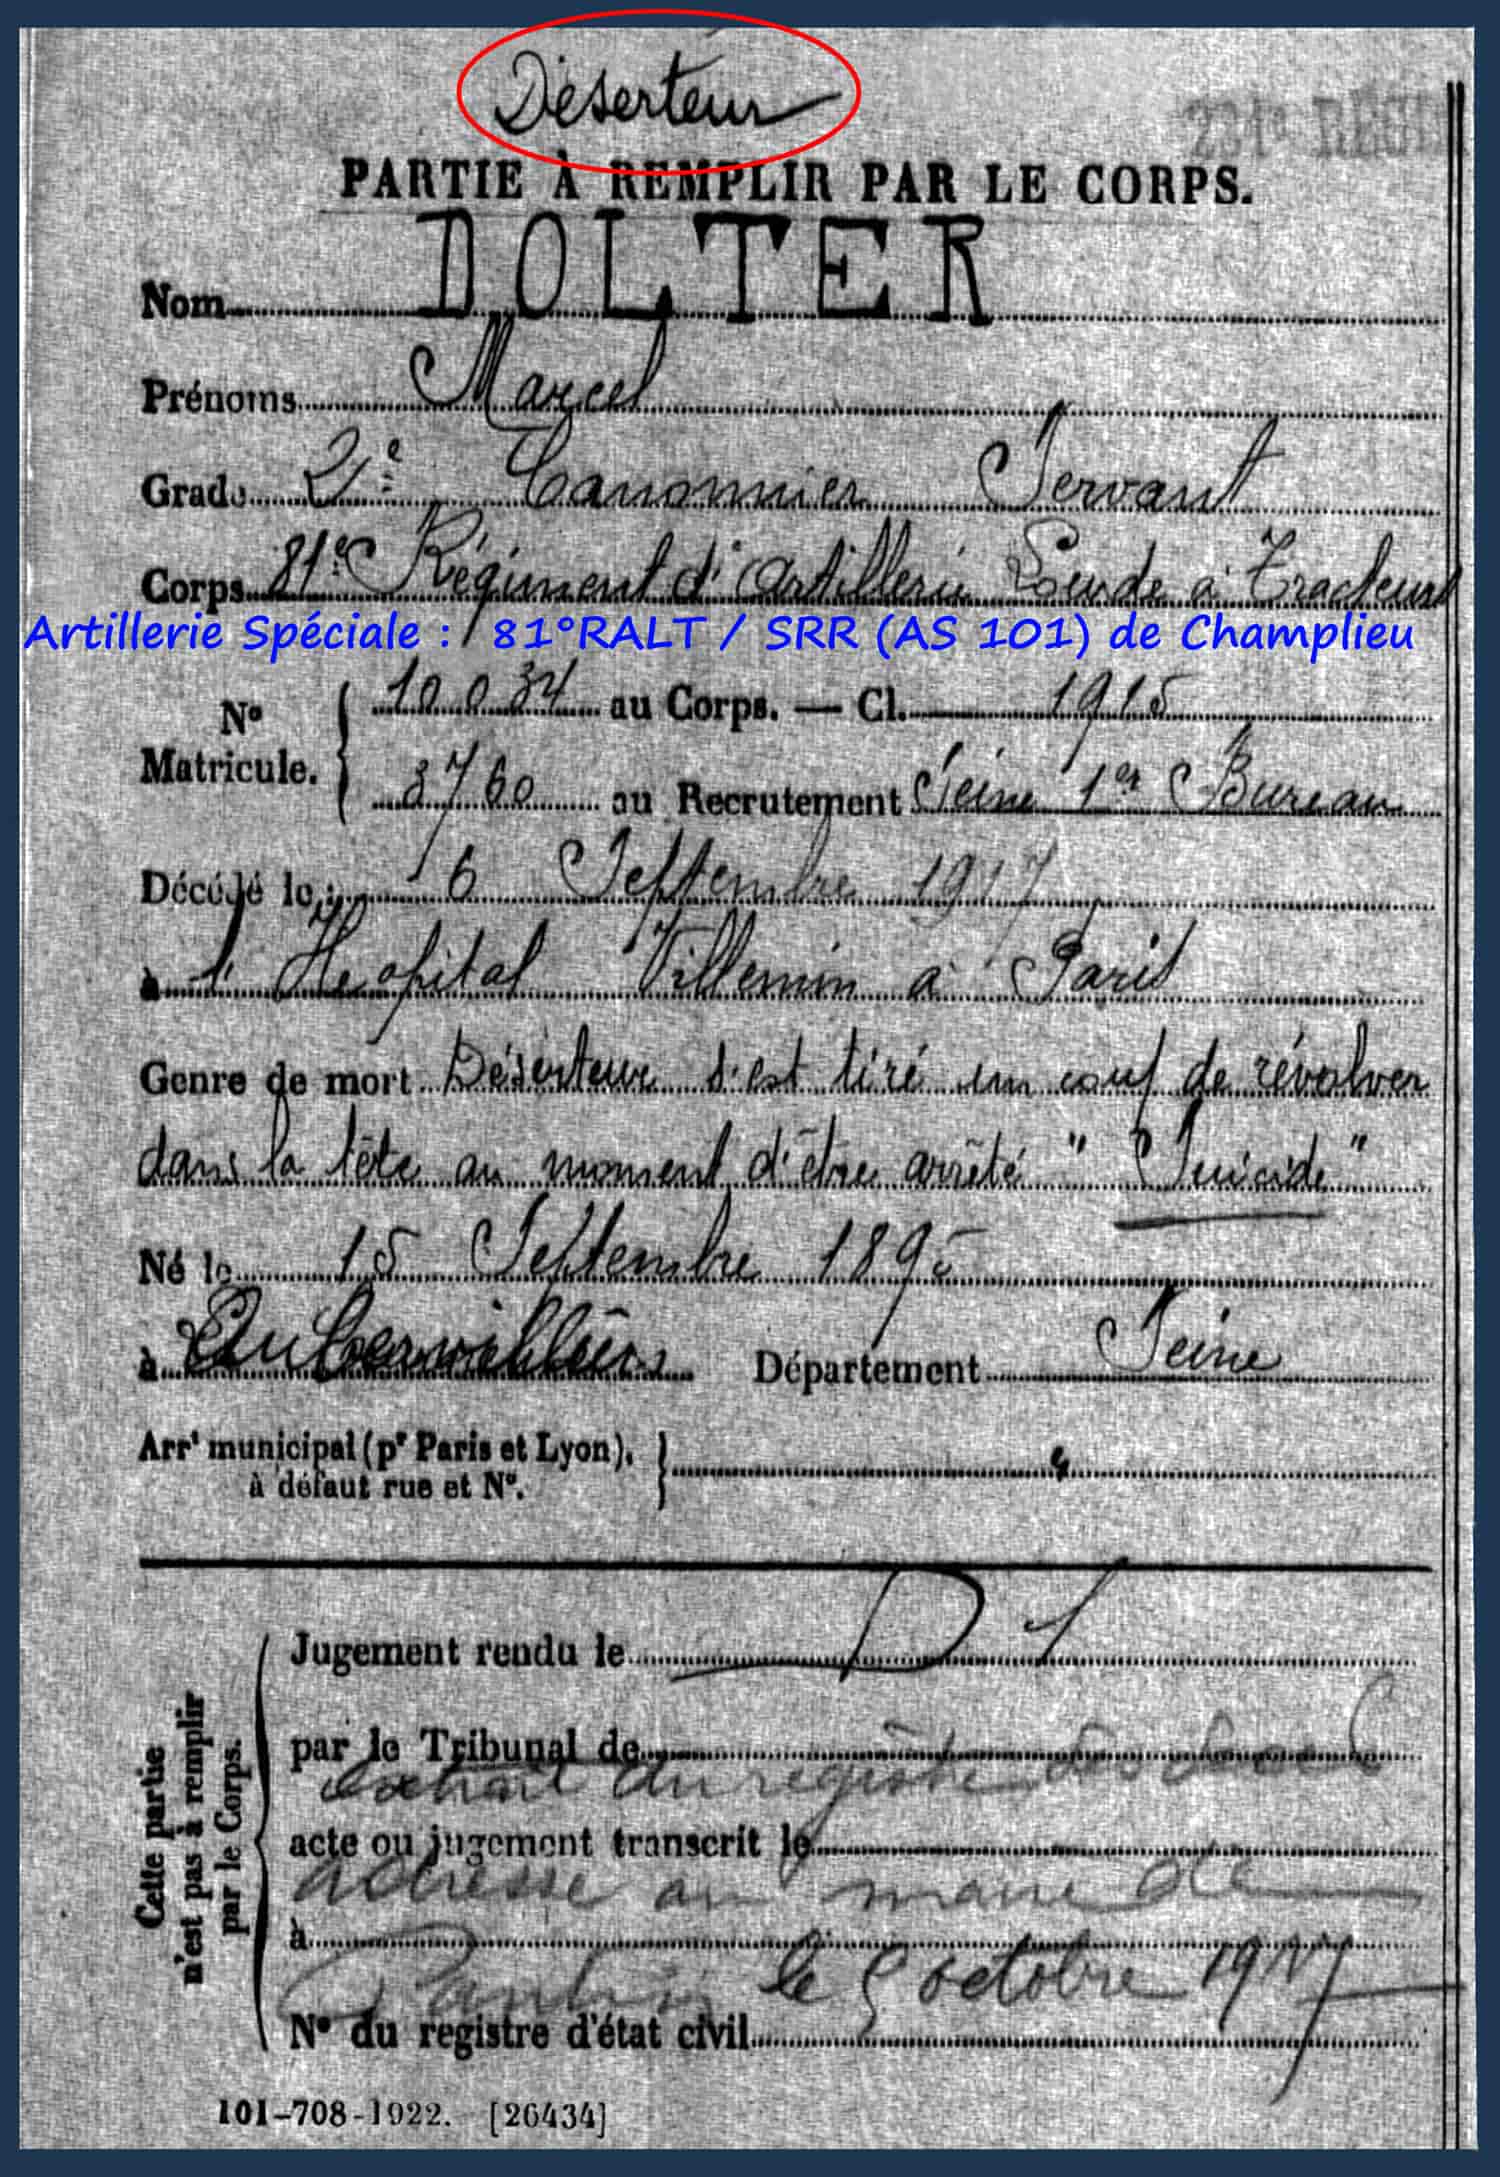 Déserteur
221e RÉGI
PARTIE À REMPLIR PAR LE CORPS.
Nom DOLTER
Prénoms Marcel
Grade 2e Canonnier Servant
Corps 81e Régiment d'Artillerie Lourde à Tracteurs
Artillerie Spéciale : 81°RALT / SRR (AS 101) de Champlieu
No Matricule. 10.034 au Corps. — Cl. 1915
3760 au Recrutement Seine 1er Bureau
Décédé le 6 Septembre 1917
à l'Hopital Villemin à Paris
Genre de mort Déserteur s'est tiré un coup de révolver
dans la tête au moment d'être arrêté "Suicide"
Né le 15 Septembre 1895
à Aubervilliers Département Seine
Arrt municipal (pr Paris et Lyon),
à défaut rue et No.
Cette partie n'est pas à remplir par le Corps.
Jugement rendu le
par le Tribunal de
extrait du registre des décès
acte ou jugement transcrit le
adressé au maire de
à
Pantin le 5 octobre 1917
No du registre d'état civil
101-708-1922. [26434]